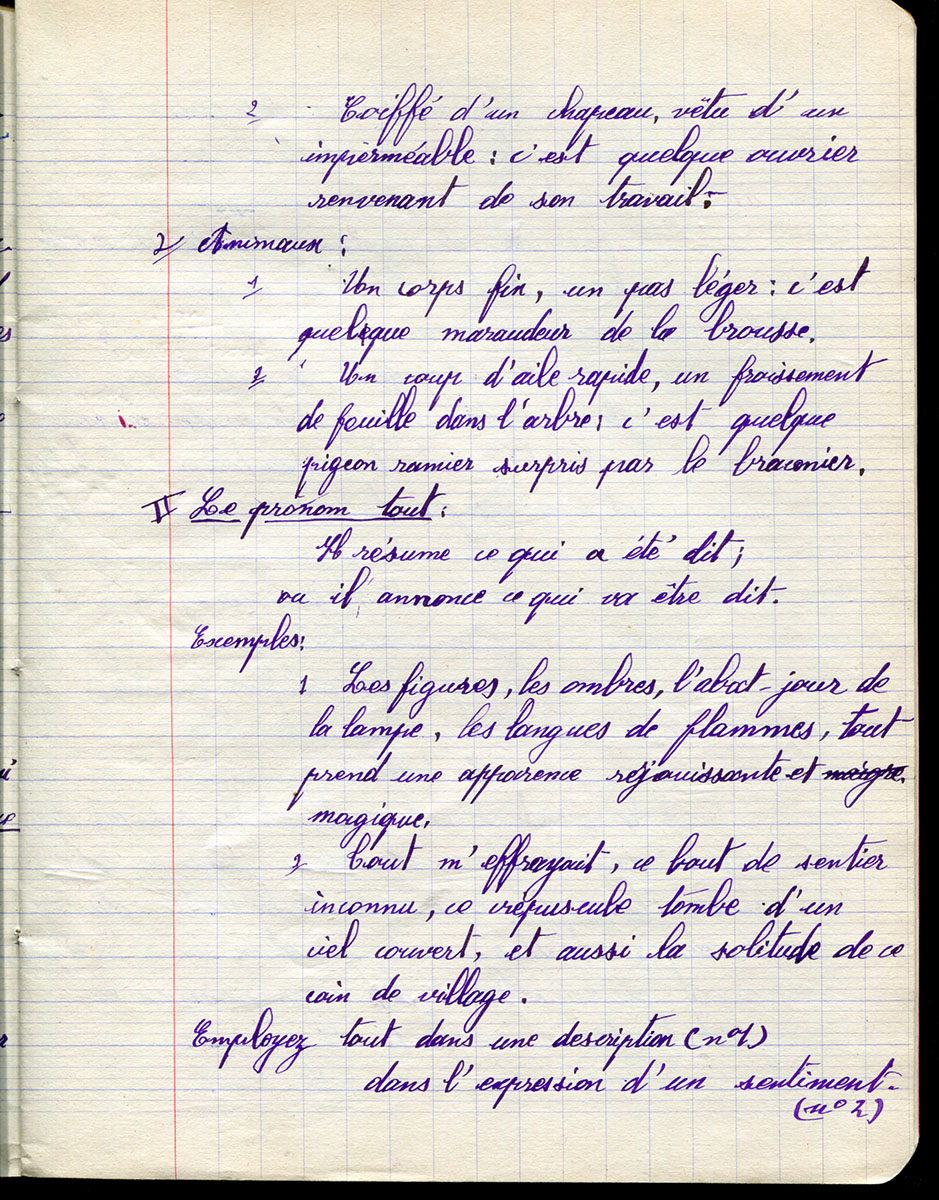 2 Coiffé d'un chapeau, vêtu d'un
imperméable : c'est quelque ouvrier
renvenant de son travail.
2/ Animaux :
1 Un corps fin, un pas léger : c'est
quelque maraudeur de la brousse.
2 Un coup d'aile rapide, un froissement
de feuille dans l'arbre ; c'est quelque
pigeon ramier surpris par le braconier.
II Le pronom tout :
Il résume ce qui a été dit ;
ou il annonce ce qui va être dit.
Exemples :
1 Les figures, les ombres, l'abat-jour de
la lampe, les langues de flammes, tout
prend une apparence réjouissante et maigre
magique.
2 Tout m'effrayait, ce bout de sentier
inconnu, ce crépuscule tombe d'un
ciel couvert, et aussi la solitude de ce
coin de village.
Employez tout dans une description (n°1)
dans l'expression d'un sentiment.
(n° 2)